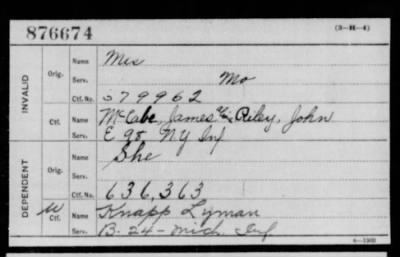 876674 (3-H-4)
INVALID
Orig. Name Mis
Serv. Mo
Ctf. No. 579962
Ctf. Name McCabe, James als Riley, John
Serv. E 98 NY Inf
DEPENDENT
Orig. Name She
Serv.
Ctf. No. 636,363
W Ctf. Name Knapp Lyman
Serv. B-24-Mich. Inf